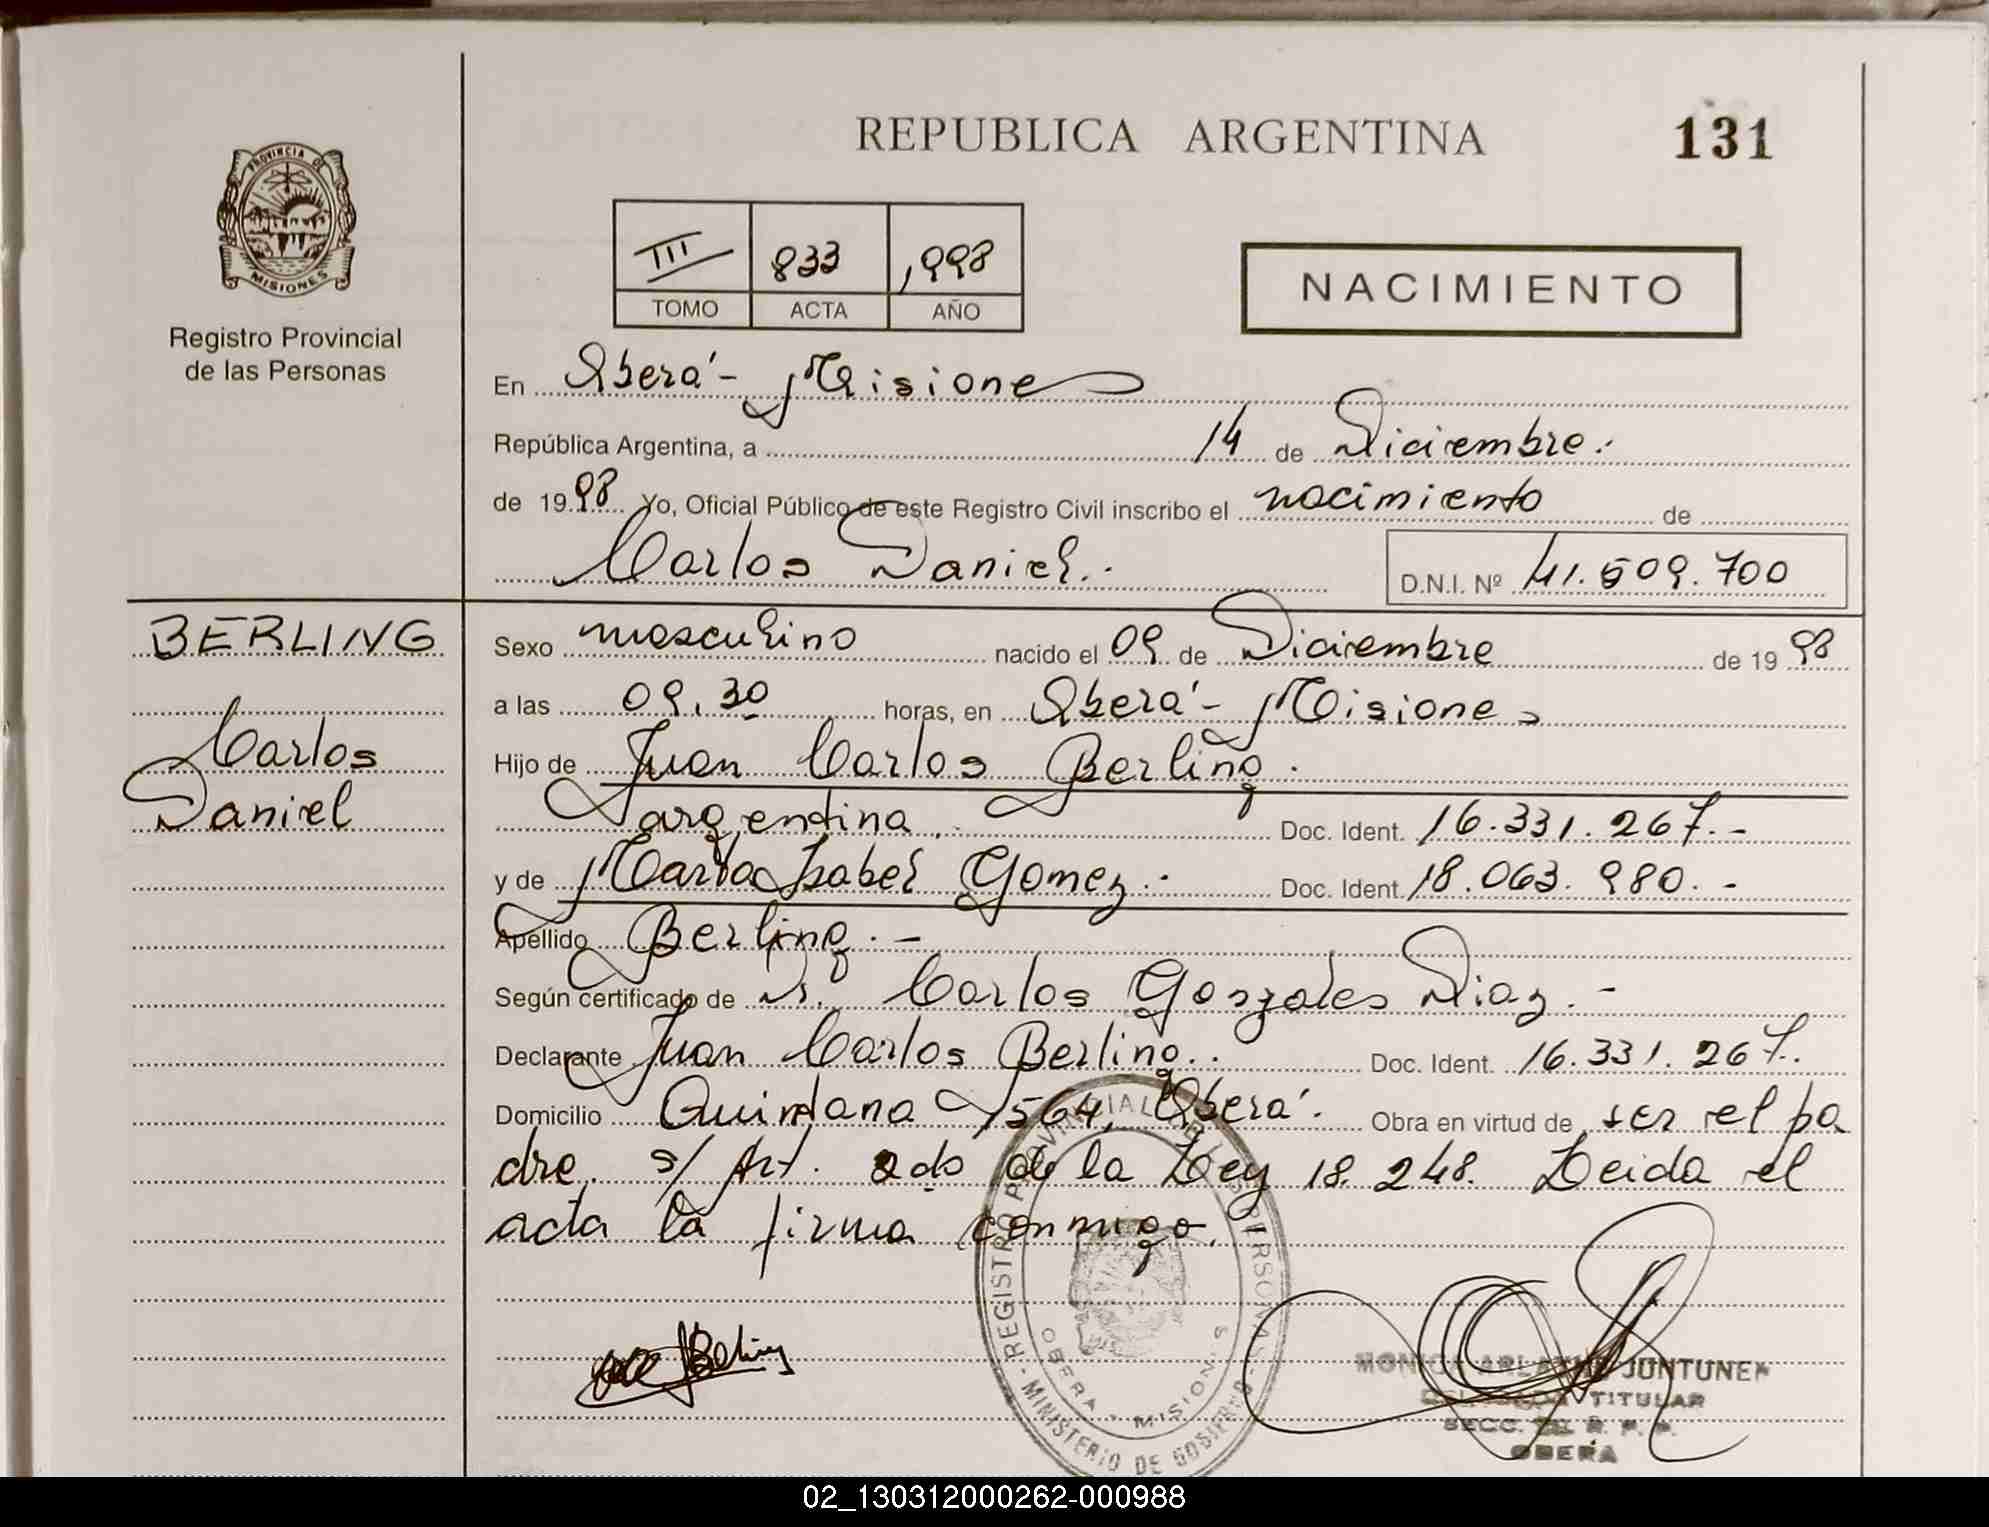 REPUBLICA ARGENTINA
131
PROVINCIA DE
MISIONES
Registro Provincial
de las Personas
III 833 1998
TOMO ACTA AÑO
NACIMIENTO
En Oberá - Misiones
República Argentina, a 14 de Diciembre.
de 1998 Yo, Oficial Público de este Registro Civil inscribo el nacimiento de
Carlos Daniel. D.N.I. Nº 41.509.700
BERLING
Carlos
Daniel
Sexo masculino nacido el 09 de Diciembre de 1998
a las 09.30 horas, en Oberá - Misiones
Hijo de Juan Carlos Berling.
argentina. Doc. Ident. 16.331.267.-
y de Marta Isabel Gomez. Doc. Ident. 18.063.980.-
Apellido Berling.-
Según certificado de Dr. Carlos Gonzales Diaz.-
Declarante Juan Carlos Berling. Doc. Ident. 16.331.267.
Domicilio Quintana 1564, Oberá. Obra en virtud de ser el pa
dre. s/ Art. 2do de la Ley 18.248. Leida el
acta la firma conmigo.
REGISTRO PROVINCIAL DE LAS PERSONAS
OBERA - MISIONES
MINISTERIO DE GOBIERNO
MONICA JUNTUNEN
DELEGADA TITULAR
SECC. R. P. P.
OBERA
02_130312000262-000988